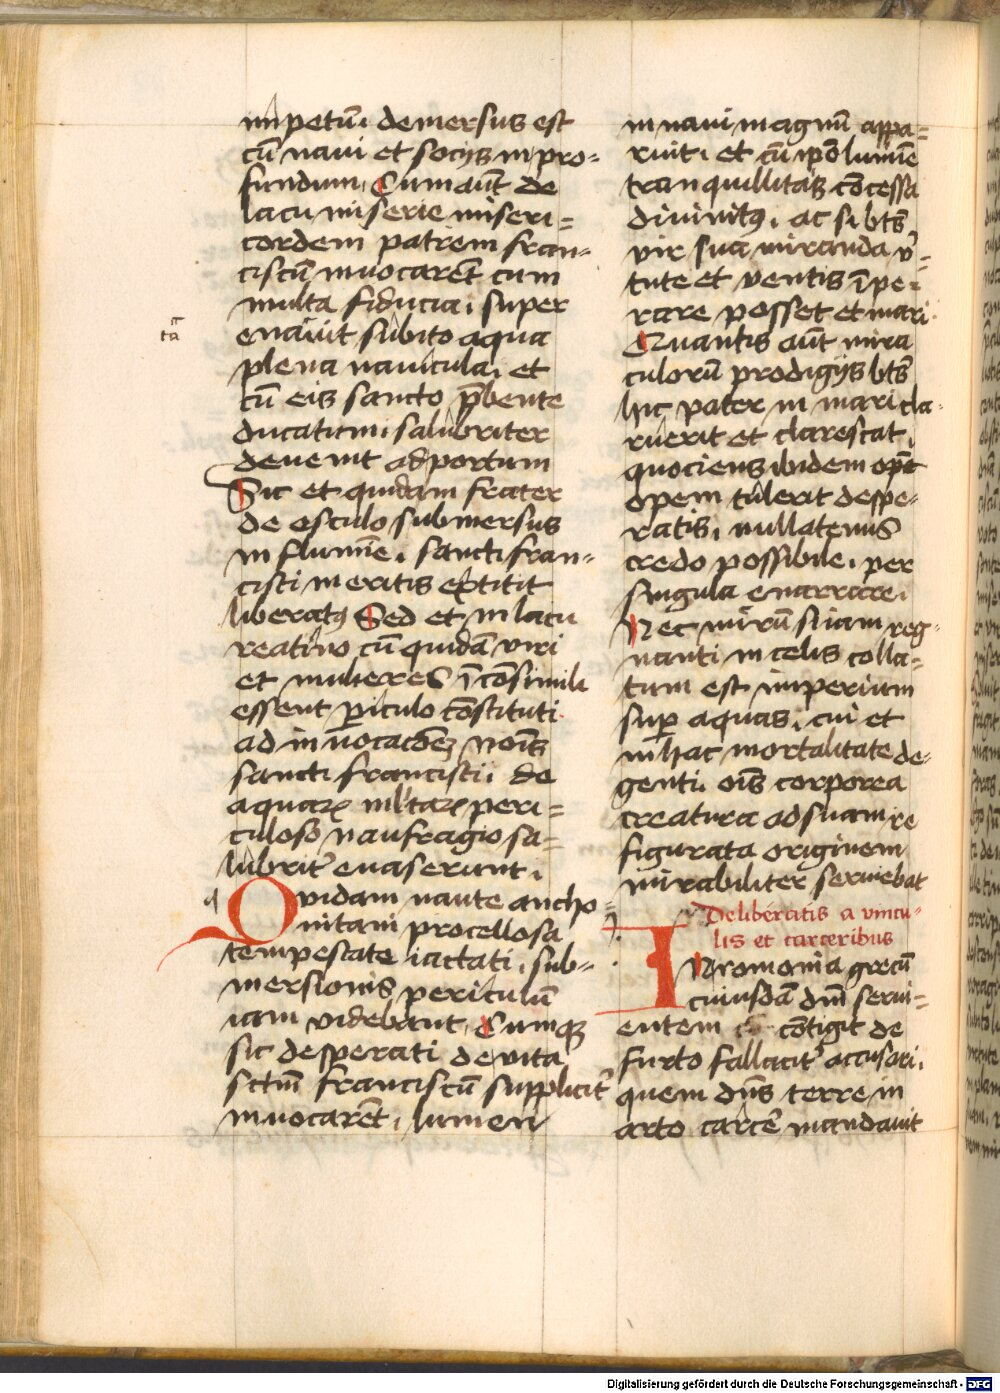 impetum. demersus est
cū naui et socijs in pro=
fundum. Cum aūt de
lacu miserie miseri=
cordem patrem fran=
ciscū inuocarēt cum
multa fiducia. super
enauit subito aqua
plena nauicula. et
cū eis sancto p̄bente
ducatum. salubriter
deuenit ad portum
Sic et quidam frater
de esculo submersus
in flumīe. sancti fran=
cisti meritis extitit
liberatꝰ Sed et in lacu
reatino cū quidā viri
et mulieres ī cōsimili
essent ꝑiculo cōstituti.
ad inuocacōeꝫ noīs
sancti francisci. de
aquaꝝ peri=
culoso naufragio sa=
lubrit᷑ euaserunt.
Quidam naute ancho=
nitani procellosa
tempestate iactati. sub=
mersionis periculū
iam videbant. Cumqꝫ
sic desperati de vita
sctm̄ franciscū supplicit᷑
inuocarēt. lumen
tā
in naui magnū appa=
ruit. et cū ip̄o lumīe
tranquillitas cōcessa
diuinitꝰ. ac si bt̄s
vir sua miranda v̓=
tute et ventis īpe=
rare posset et mari.
Quantis aūt mira
culorū prodigijs bt̄s
hic pater in mari cla=
ruerit et clarescat.
quociens ibidem
opem tulerit despe=
ratis. nullatenus
credo possibile. per
singula enarrare.
Nec mirū si iam reg=
nanti in celis colla=
tum est imperium
suꝑ aquas. cui et
in hac mortalitate de=
genti. oīs corporea
creatura ad suam re
figurata originem
mirabiliter seruiebat
De liberatis a vincu=
lis et carceribus
IN romonia grecū
cuiusdā dn̄i serui=
entem cōtigit de
furto fallacit᷑ accusari.
quem dn̄s terre in
arto carcē mandauit
Digitalisierung gefördert durch die Deutsche Forschungsgemeinschaft - DFG